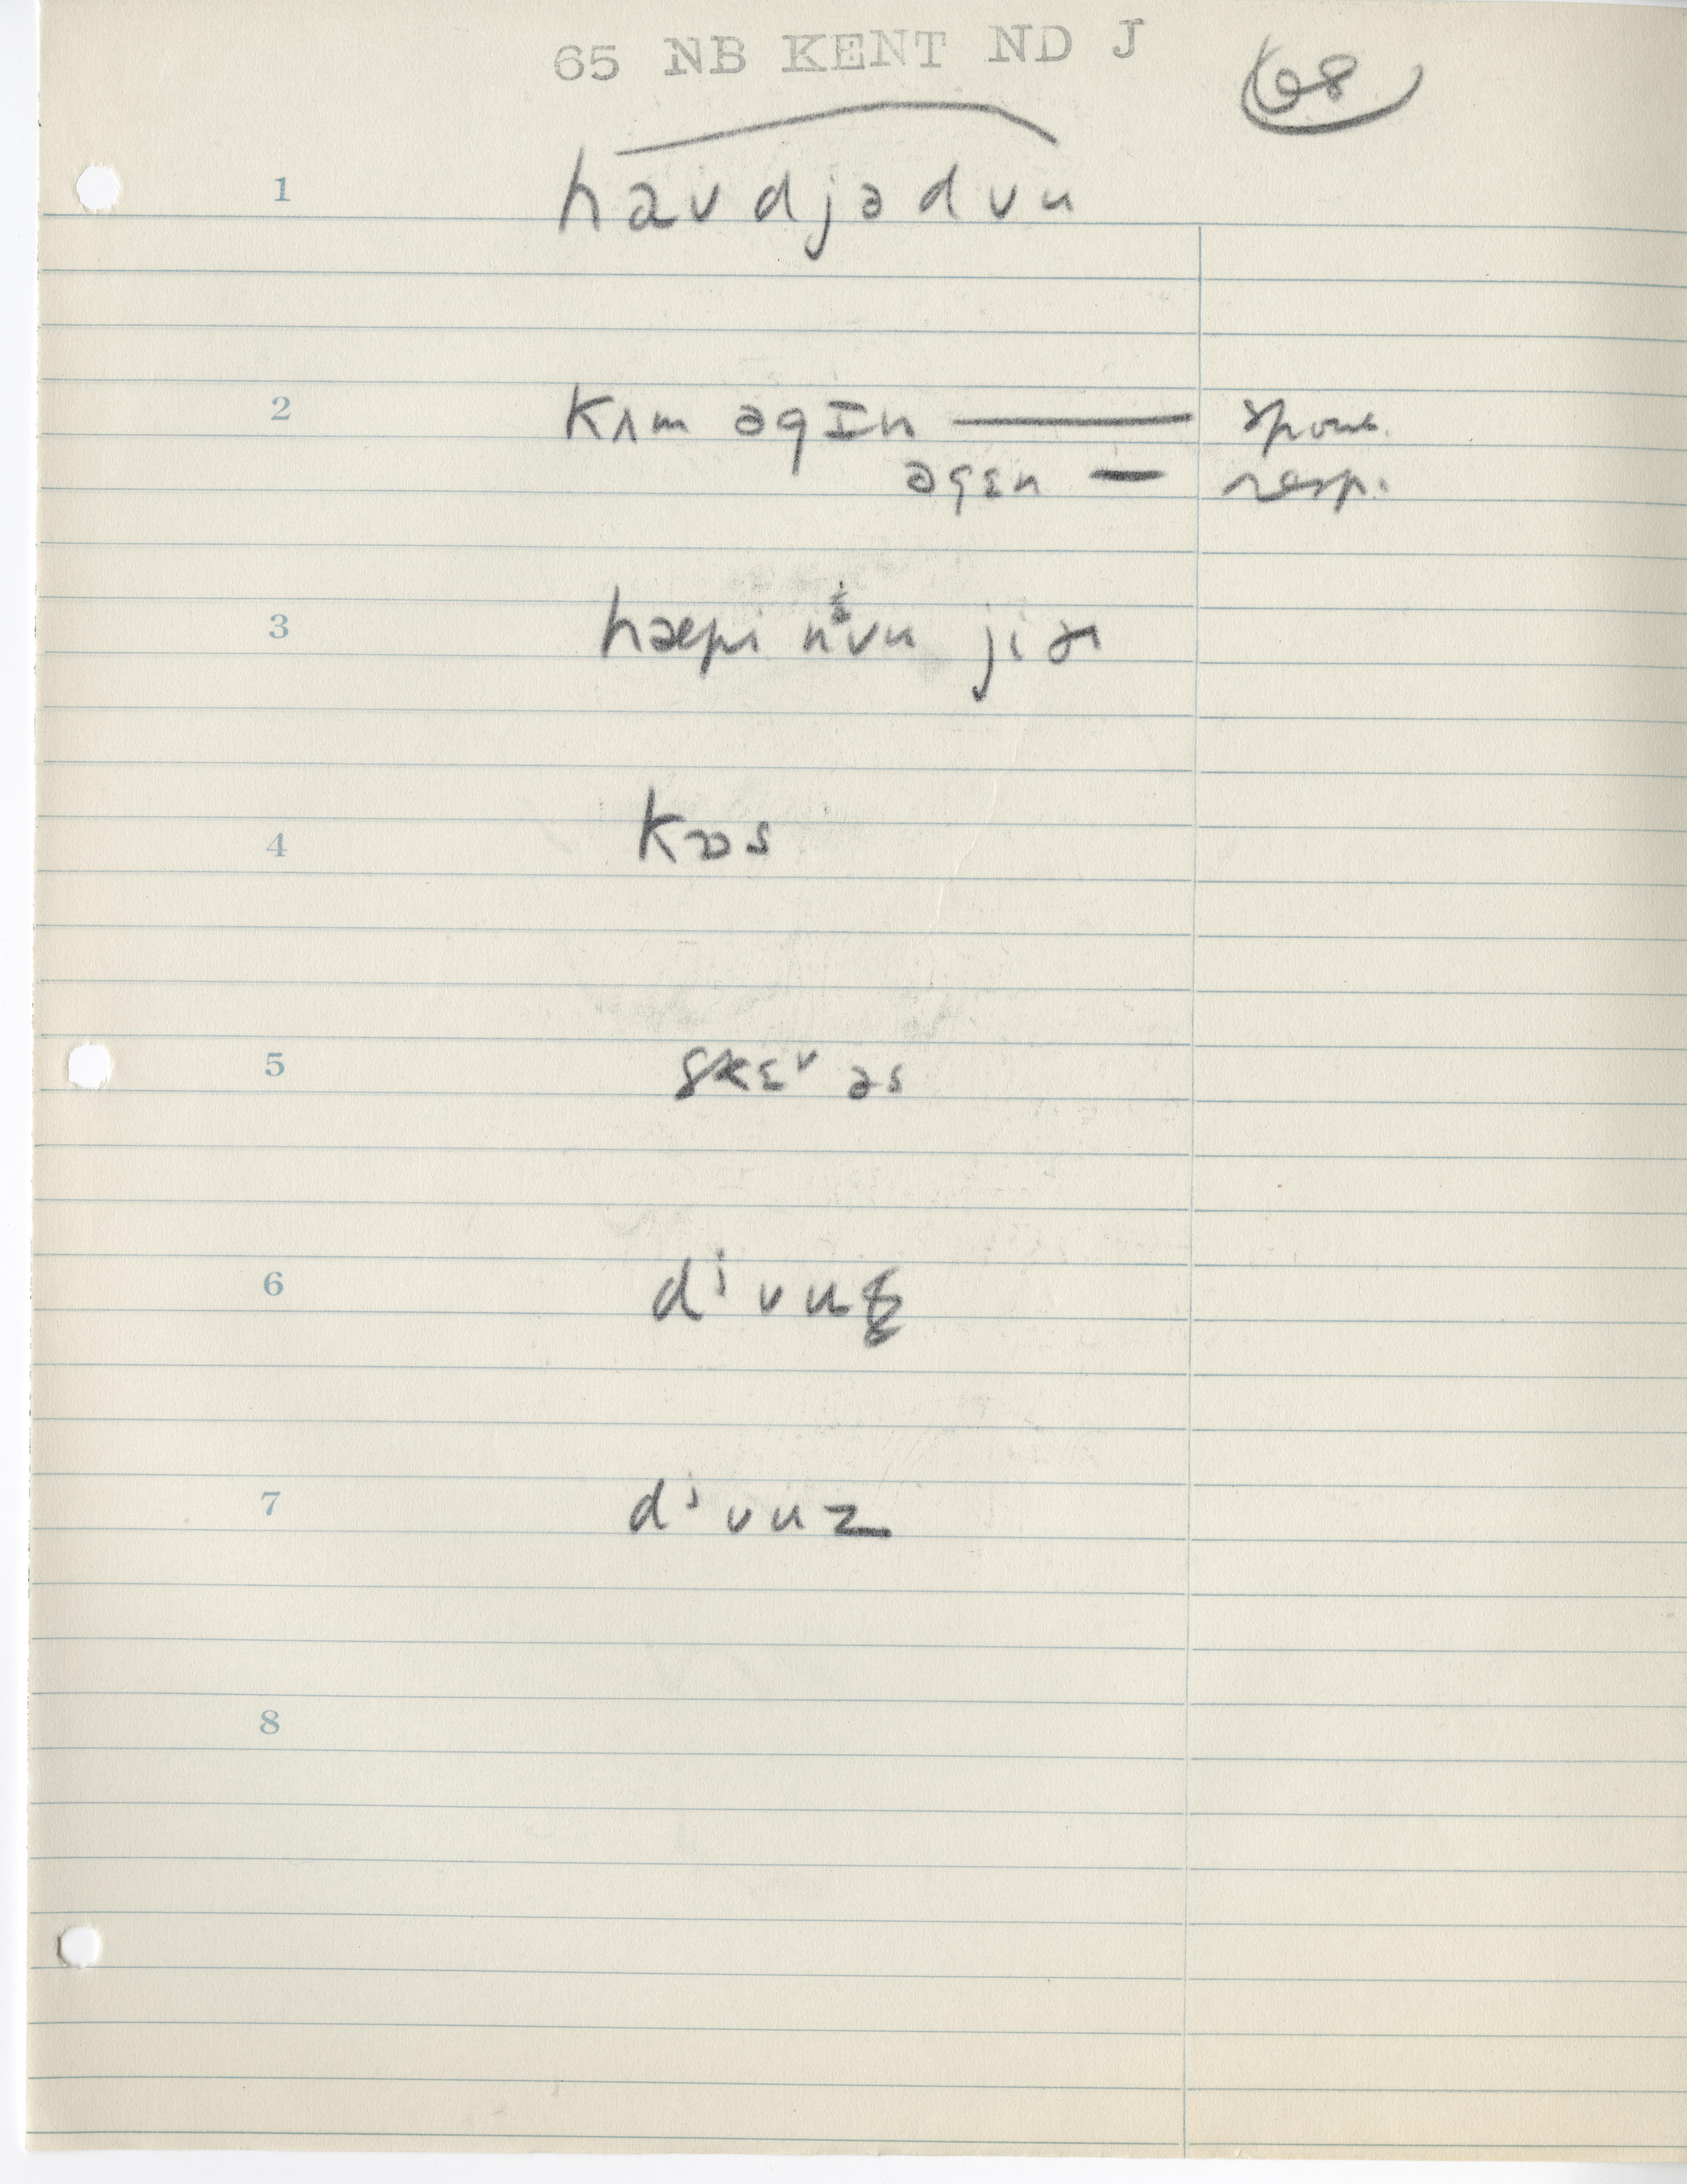 65 NB KENT ND J
68
1 haʊdjədʊu
2 kʌm əgɪn — spont.
əgɛn — resp.
3 hæpi nɨʊu jiɚ
4 kɒs
5 skɛʊ əs
6 dʲʊuz̥
7 dʲʊuz
8